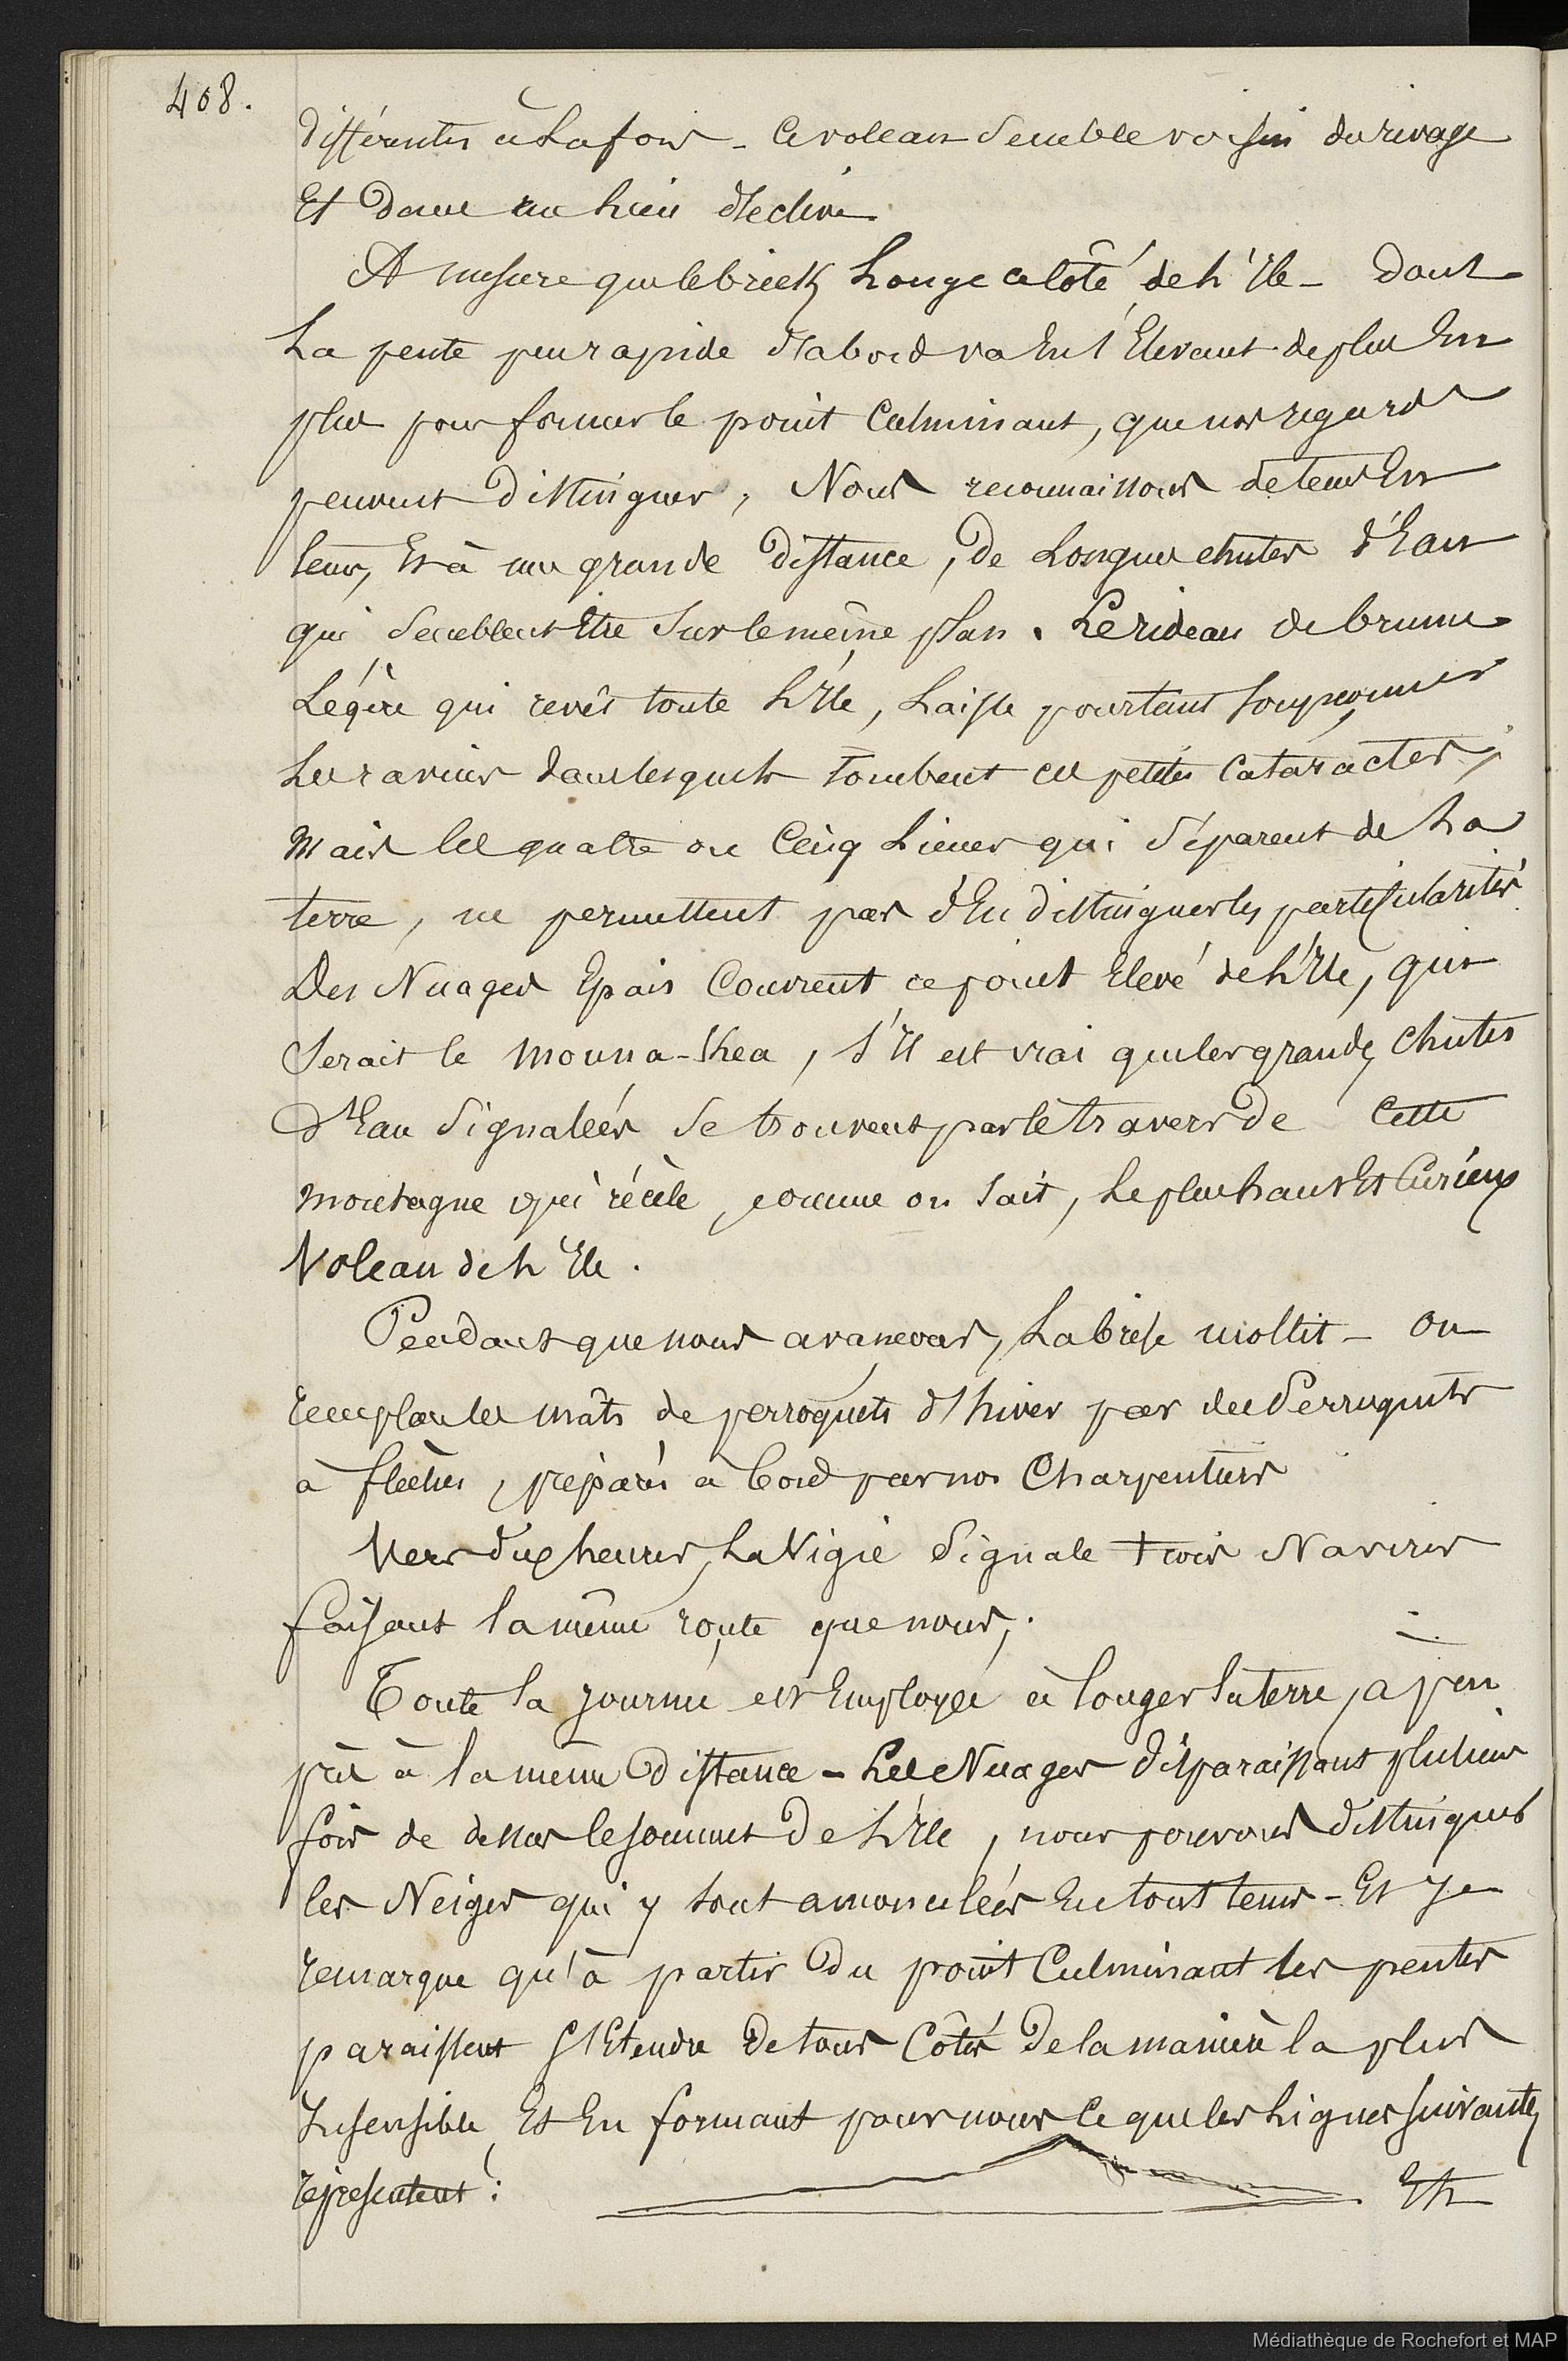 408.
différentes à la fois - Ce volcan semble voisin du rivage
Et dans un lieu déclive.
A mesure que le brick Longe ce côté de l'Ile - Dont
La pente peu rapide d'abord va En s'Elevant de plus En
plus pour former le point Culminant, que nos regards
peuvent distinguer, Nous reconnaissons de tems En
tems, Et à une grande distance, de Longues chutes d'Eau
qui semblent Etre sur le même plan. Le rideau de brume
Légère qui revêt toute l'Ile, Laisse pourtant soupçonner
Les ravins dans lesquels tombent ces petites Cataractes;
Mais les quatre ou Cinq Lieues qui séparent de La
terre, ne permettent pas d'En distinguer les particularités.
Des Nuages Epais Couvrent ce point Elevé de l'Ile, qui
serait le Mouna-Kea, s'Il est vrai que les grandes chutes
d'Eau signalées se trouvent par le travers de Cette
montagne qui récèle, comme on sait, Le plus haut Et Curieux
Volcan de l'Ile.
Pendant que nous avancons, La brise mollit - On
remplace les mâts de perroquets d'hiver par des Perroquets
à flèches, préparés à bord par nos Charpentiers
Vers dix heures, La Vigie signale trois Navires
faisant la même route que nous;
Toute la journée est Employée à longer la terre, a peu
près à la même distance - Les Nuages disparaissant plusieurs
fois de dessus le sommet De l'Ile, nous pouvons distinguer
les Neiges qui y sont amoncelées En tout tems - Et Je
remarque qu'à partir Du point Culminant les pentes
paraissent s'Etendre De tous Côtés De la manière la plus
Insensible, Et En formant pour nous Ce que les Lignes suivantes
représentent :
Et
Médiathèque de Rochefort et MAP